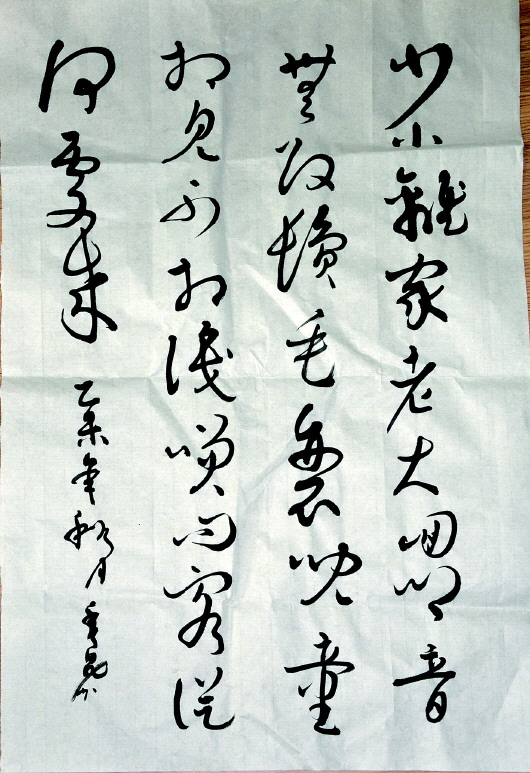 少小離家老大回鄉音
無改鬢毛衰兒童
相見不相識咲問客從
何處來
乙未年秋月